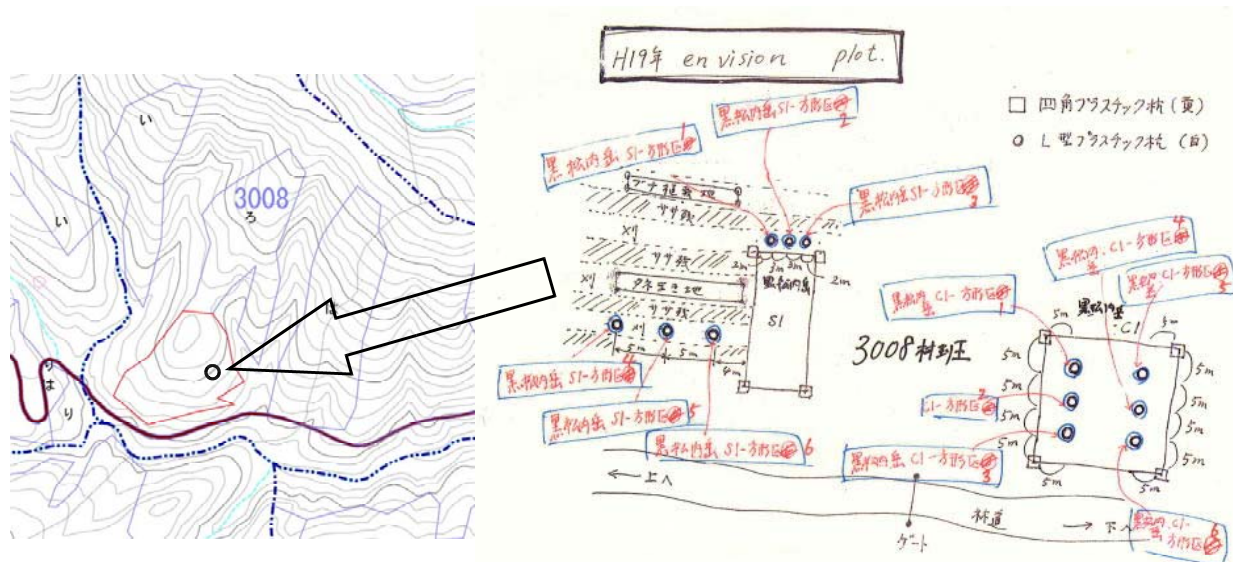 い
い
い
3008
ろ
は
り
は
り
H19年 en vision plot.
□ 四角プラスチック杭(黄)
○ L型プラスチック杭(白)
黒松内岳 S1-方形区
1
黒松内岳 S1-方形区
2
黒松内岳 S1-方形区
3
ブナ植栽地
ササ残
刈
ササ残
刈
タネまき地
ササ残
刈
2m
3m
3m
2m
黒松内岳
S1
5m
5m
4m
黒松内岳 S1-方形区
4
黒松内岳 S1-方形区
5
黒松内岳 S1-方形区
6
3008林班
黒松内岳 C1-方形区
4
黒松内岳 C1-方形区
5
黒松内岳 C1-方形区
1
C1-方形区
2
黒松内岳 C1-方形区
3
黒松内岳 C1-方形区
6
黒松内岳
C1
5m
5m
5m
5m
5m
5m
5m
5m
5m
5m
5m
5m
← 上へ
林道
→ 下へ
ゲート